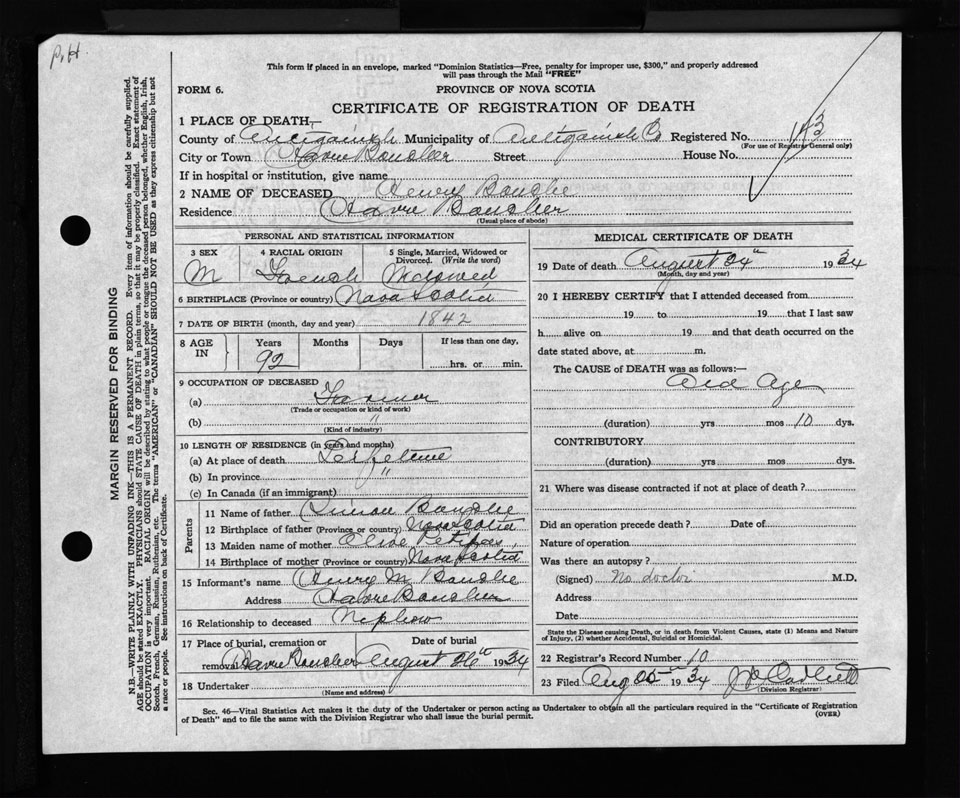 P.H.
This form if placed in an envelope, marked "Dominion Statistics—Free, penalty for improper use, $300," and properly addressed
will pass through the Mail "FREE"
FORM 6.
PROVINCE OF NOVA SCOTIA
CERTIFICATE OF REGISTRATION OF DEATH
1 PLACE OF DEATH,—
County of Antigonish Municipality of Antigonish Co Registered No. 143
(For use of Registrar General only)
City or Town Havre Boucher Street House No.
If in hospital or institution, give name
2 NAME OF DECEASED Henry
Residence Havre Boucher
(Usual place of abode)
PERSONAL AND STATISTICAL INFORMATION
3 SEX 4 RACIAL ORIGIN 5 Single, Married, Widowed or
Divorced. (Write the word)
M French Widowed
6 BIRTHPLACE (Province or country) Nova Scotia
7 DATE OF BIRTH (month, day and year) 1842
8 AGE IN Years Months Days If less than one day,
92 hrs. or min.
9 OCCUPATION OF DECEASED
(a) Farmer
(Trade or occupation or kind of work)
(b) "
(Kind of industry)
10 LENGTH OF RESIDENCE (in years and months)
(a) At place of death Lifetime
(b) In province "
(c) In Canada (if an immigrant)
Parents
11 Name of father Simon
12 Birthplace of father (Province or country) Nova Scotia
13 Maiden name of mother Olive Petipas
14 Birthplace of mother (Province or country) Nova Scotia
15 Informant's name Henry M.
Address Havre Boucher
16 Relationship to deceased Nephew
17 Place of burial, cremation or Date of burial
removal Havre Boucher August 26th 1934
18 Undertaker
(Name and address)
MEDICAL CERTIFICATE OF DEATH
19 Date of death August 24th 1934
(Month, day and year)
20 I HEREBY CERTIFY that I attended deceased from
19 to 19 that I last saw
h alive on 19 and that death occurred on the
date stated above, at m.
The CAUSE of DEATH was as follows:—
Old Age
(duration) yrs mos 10 dys.
CONTRIBUTORY
(duration) yrs mos dys.
21 Where was disease contracted if not at place of death?
Did an operation precede death? Date of
Nature of operation
Was there an autopsy?
(Signed) No doctor M.D.
Address
Date
State the Disease causing Death, or in death from Violent Causes, state (1) Means and Nature
of Injury, (2) whether Accidental, Suicidal or Homicidal.
22 Registrar's Record Number 10
23 Filed Aug 25 1934
(Division Registrar)
Sec. 46—Vital Statistics Act makes it the duty of the Undertaker or person acting as Undertaker to obtain all the particulars required in the "Certificate of Registration
of Death" and to file the same with the Division Registrar who shall issue the burial permit. (OVER)
MARGIN RESERVED FOR BINDING
N.B.—WRITE PLAINLY WITH UNFADING INK—THIS IS A PERMANENT RECORD. Every item of information should be carefully supplied.
AGE should be stated EXACTLY. PHYSICIANS should STATE CAUSE OF DEATH in plain terms, so that it may be properly classified. Exact statement of
OCCUPATION is very important. RACIAL ORIGIN will be described by stating to what people or tongue the deceased person belonged, whether English, Irish,
Scotch, French, German, Russian, Ruthenian, etc. The terms "AMERICAN" or "CANADIAN" SHOULD NOT BE USED as they express citizenship but not
a race or people. See instructions on back of Certificate.